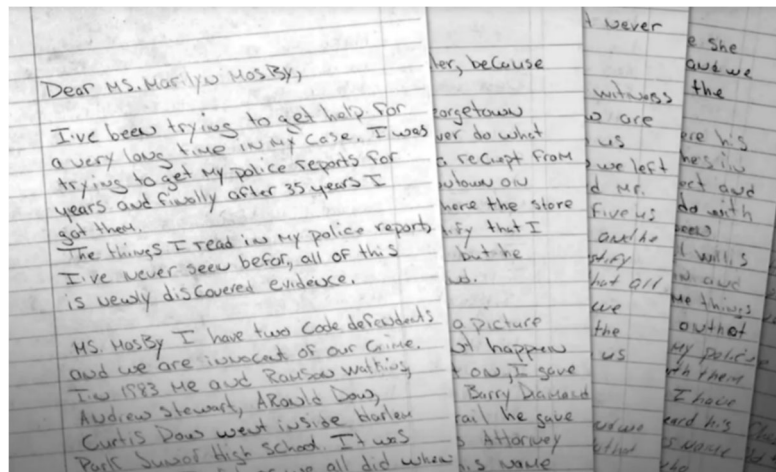 Dear MS. Marilyn MosBy,
I've been trying to get help for
a very long time in my case. I was
trying to get my police reports for
years and finally after 35 years I
got them.
The things I read in my police reports
I've never seen befor, all of this
is newly discovered evidence.
MS. MosBy I have two codefendents
and we are innocent of our crime.
In 1983 me and Ransom Watkins,
Andrew Stewart, ARonld Dow,
Curtis Dow went inside Harlem
Park Junor High School. It was
all did when
ler, because
eorgetown
ver do what
a recipt from
ntown on
here the store
ify that I
but he
a picture
t happen
t on, I gave
Barry Diamond
rail he gave
s Attorney
his name
t never
witness
w are
us
we left
d Mr.
five us
and he
stify
hat all
we
the
us
e she
and we
the
ere his
he's in
ect and
do with
been
l willis
n and
me things
on that
my police
th them
I have
eard his
s name